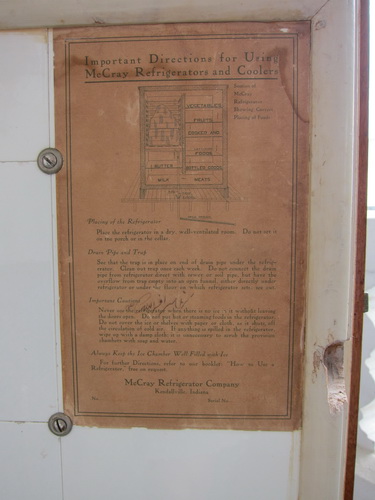 Important Directions for Using
McCray Refrigerators and Coolers
Interior of
McCray
Refrigerators
Showing Correct
Placing of Foods
VEGETABLES
FRUITS
BUTTER
MILK
MEATS
Placing of the Refrigerator
Place the refrigerator in a dry, well-ventilated room. Do not set it
on the porch or in the cellar.
Drain Pipe and Trap
See that the trap is in place on end of drain pipe under the refrige-
rator. Clean out trap once each week. Do not connect the drain
pipe from refrigerator direct with sewer or soil pipe, but have the
overflow from trap empty into an open funnel, either directly under
refrigerator or under the floor on which refrigerator sits.
Important Cautions
Never use the refrigerator when there is no ice without leaving
the doors open. Do not put hot or steaming foods in the refrigerator.
Do not cover the ice or shelves with paper or cloth, as it shuts off
the circulation of cold air. If anything is spilled in the refrigerator,
wipe up with a damp cloth. It is unnecessary to scrub the provision
chambers with soap and water.
Always Keep the Ice Chamber Well Filled with Ice
For further Directions, refer to our booklet "How to Use a
Refrigerator" free on request.
McCray Refrigerator Company
Kendallville, Indiana
No.
Serial No.